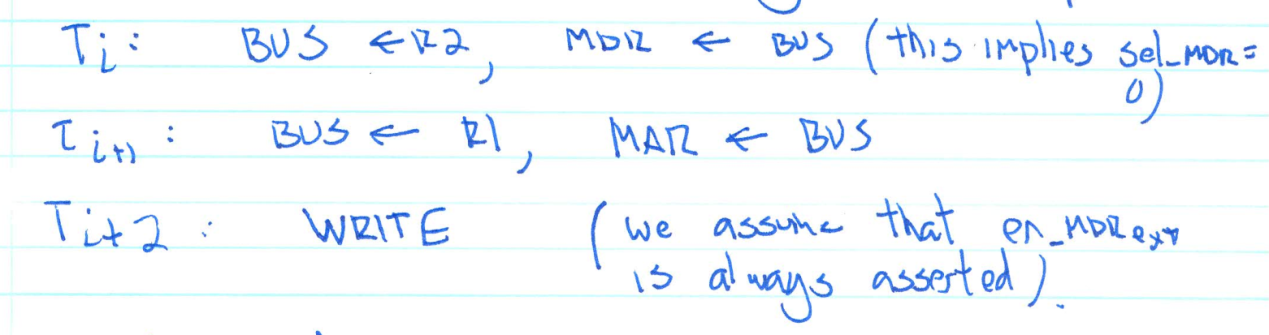 Ti : BUS ← R2, MDR ← BUS (this implies sel_MDR=
0)
Ti+1 : BUS ← R1, MAR ← BUS
Ti+2 : WRITE (we assume that en_MDRext
is always asserted).